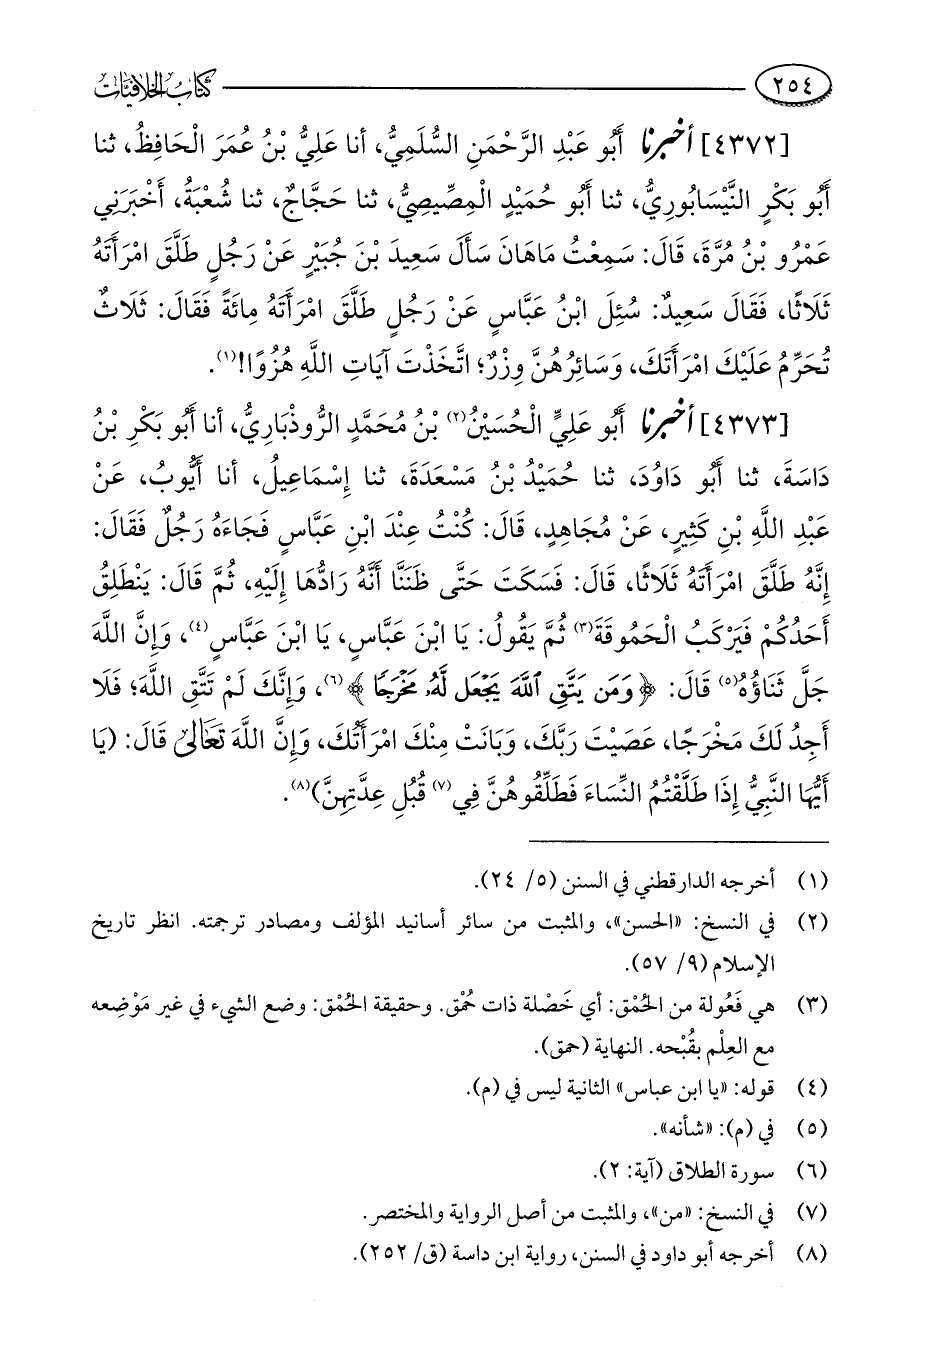 ٢٥٤ كتاب الخلافيات
[٤٣٧٢] أخبرنا أَبُو عَبْدِ الرَّحْمَنِ السُّلَمِيُّ، أنا عَلِيُّ بْنُ عُمَرَ الْحَافِظُ، ثنا
أَبُو بَكْرٍ النَّيْسَابُورِيُّ، ثنا أَبُو حُمَيْدٍ الْمِصِّيصِيُّ، ثنا حَجَّاجٌ، ثنا شُعْبَةُ، أَخْبَرَنِي
عَمْرُو بْنُ مُرَّةَ، قَالَ: سَمِعْتُ مَاهَانَ سَأَلَ سَعِيدَ بْنَ جُبَيْرٍ عَنْ رَجُلٍ طَلَّقَ امْرَأَتَهُ
ثَلَاثًا، فَقَالَ سَعِيدٌ: سُئِلَ ابْنُ عَبَّاسٍ عَنْ رَجُلٍ طَلَّقَ امْرَأَتَهُ مِائَةً فَقَالَ: ثَلَاثٌ
تُحَرِّمُ عَلَيْكَ امْرَأَتَكَ، وَسَائِرُهُنَّ وِزْرٌ؛ اتَّخَذْتَ آيَاتِ اللَّهِ هُزُوًا!(١).
[٤٣٧٣] أخبرنا أَبُو عَلِيٍّ الْحُسَيْنُ(٢) بْنُ مُحَمَّدٍ الرُّوذْبَارِيُّ، أنا أَبُو بَكْرِ بْنُ
دَاسَةَ، ثنا أَبُو دَاوُدَ، ثنا حُمَيْدُ بْنُ مَسْعَدَةَ، ثنا إِسْمَاعِيلُ، أنا أَيُّوبُ، عَنْ
عَبْدِ اللَّهِ بْنِ كَثِيرٍ، عَنْ مُجَاهِدٍ، قَالَ: كُنْتُ عِنْدَ ابْنِ عَبَّاسٍ فَجَاءَهُ رَجُلٌ فَقَالَ:
إِنَّهُ طَلَّقَ امْرَأَتَهُ ثَلَاثًا، قَالَ: فَسَكَتَ حَتَّى ظَنَنَّا أَنَّهُ رَادُّهَا إِلَيْهِ، ثُمَّ قَالَ: يَنْطَلِقُ
أَحَدُكُمْ فَيَرْكَبُ الْحَمُوقَةَ(٣) ثُمَّ يَقُولُ: يَا ابْنَ عَبَّاسٍ، يَا ابْنَ عَبَّاسٍ(٤)، وَإِنَّ اللَّهَ
جَلَّ ثَنَاؤُهُ(٥) قَالَ: ﴿وَمَن يَتَّقِ ٱللَّهَ يَجْعَل لَّهُۥ مَخْرَجًا﴾(٦)، وَإِنَّكَ لَمْ تَتَّقِ اللَّهَ؛ فَلَا
أَجِدُ لَكَ مَخْرَجًا، عَصَيْتَ رَبَّكَ، وَبَانَتْ مِنْكَ امْرَأَتُكَ، وَإِنَّ اللَّهَ تَعَالَىٰ قَالَ: (يَا
أَيُّهَا النَّبِيُّ إِذَا طَلَّقْتُمُ النِّسَاءَ فَطَلِّقُوهُنَّ فِي(٧) قُبُلِ عِدَّتِهِنَّ)(٨).
(١) أخرجه الدارقطني في السنن (٥/ ٢٤).
(٢) في النسخ: «الحسن»، والمثبت من سائر أسانيد المؤلف ومصادر ترجمته. انظر تاريخ
الإسلام (٩/ ٥٧).
(٣) هي فَعُولة من الحُمْق: أي خَصْلة ذات حُمْق. وحقيقة الحُمْق: وضع الشيء في غير مَوْضِعه
مع العِلْم بقُبْحه. النهاية (حمق).
(٤) قوله: «يا ابن عباس» الثانية ليس في (م).
(٥) في (م): «شأنه».
(٦) سورة الطلاق (آية: ٢).
(٧) في النسخ: «من»، والمثبت من أصل الرواية والمختصر.
(٨) أخرجه أبو داود في السنن، رواية ابن داسة (ق/ ٢٥٢).